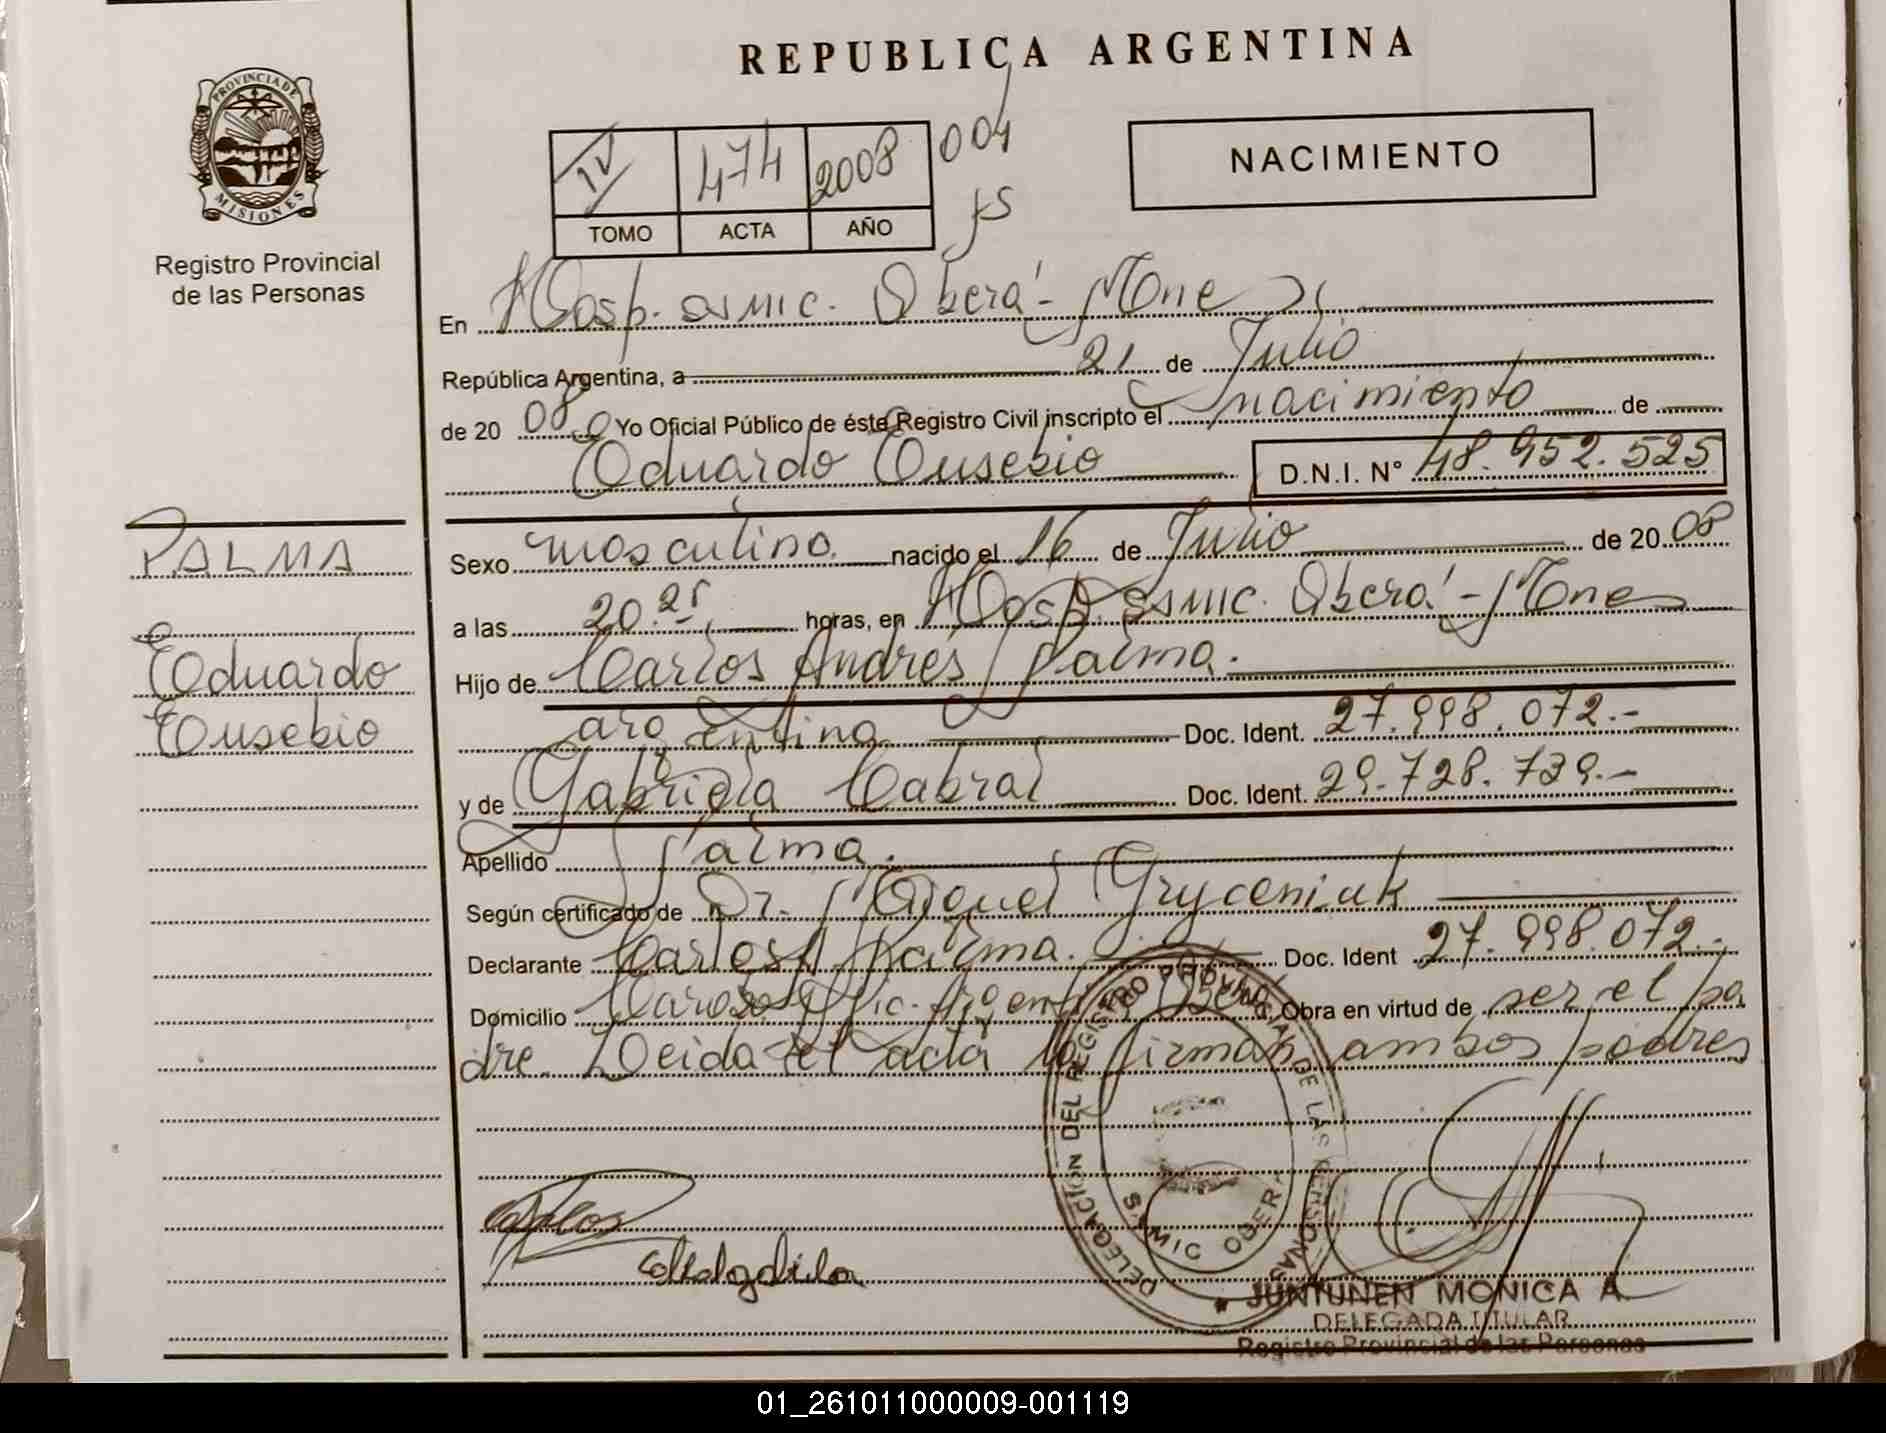 REPUBLICA ARGENTINA
PROVINCIA DE MISIONES
Registro Provincial
de las Personas
IV 474 2008 004
TOMO ACTA AÑO
NACIMIENTO
En Hosp. samic. Oberá - Mnes
República Argentina, a 21 de Julio
de 20 08 Yo Oficial Público de éste Registro Civil inscripto el nacimiento de
Eduardo Eusebio D.N.I. N° 48.952.525
PALMA
Eduardo
Eusebio
Sexo masculino nacido el 16 de Julio de 20 08
a las 20.25 horas, en Hosp. samic. Oberá - Mnes
Hijo de Carlos Andrés Palma.
argentina Doc. Ident. 27.998.072.-
y de Gabriela Cabral Doc. Ident. 29.728.739.-
Apellido Palma.
Según certificado de Dr. Miguel Gryceniuk
Declarante Carlos A Palma. Doc. Ident 27.998.072.-
Domicilio Obra en virtud de ser el pa
dre. Leida el acta la firman ambos padres
DELEGACION DEL REGISTRO PROVINCIAL DE LAS PERSONAS
SAMIC OBERA
JUNTUNEN MONICA A.
DELEGADA TITULAR
Registro Provincial de las Personas
01_261011000009-001119